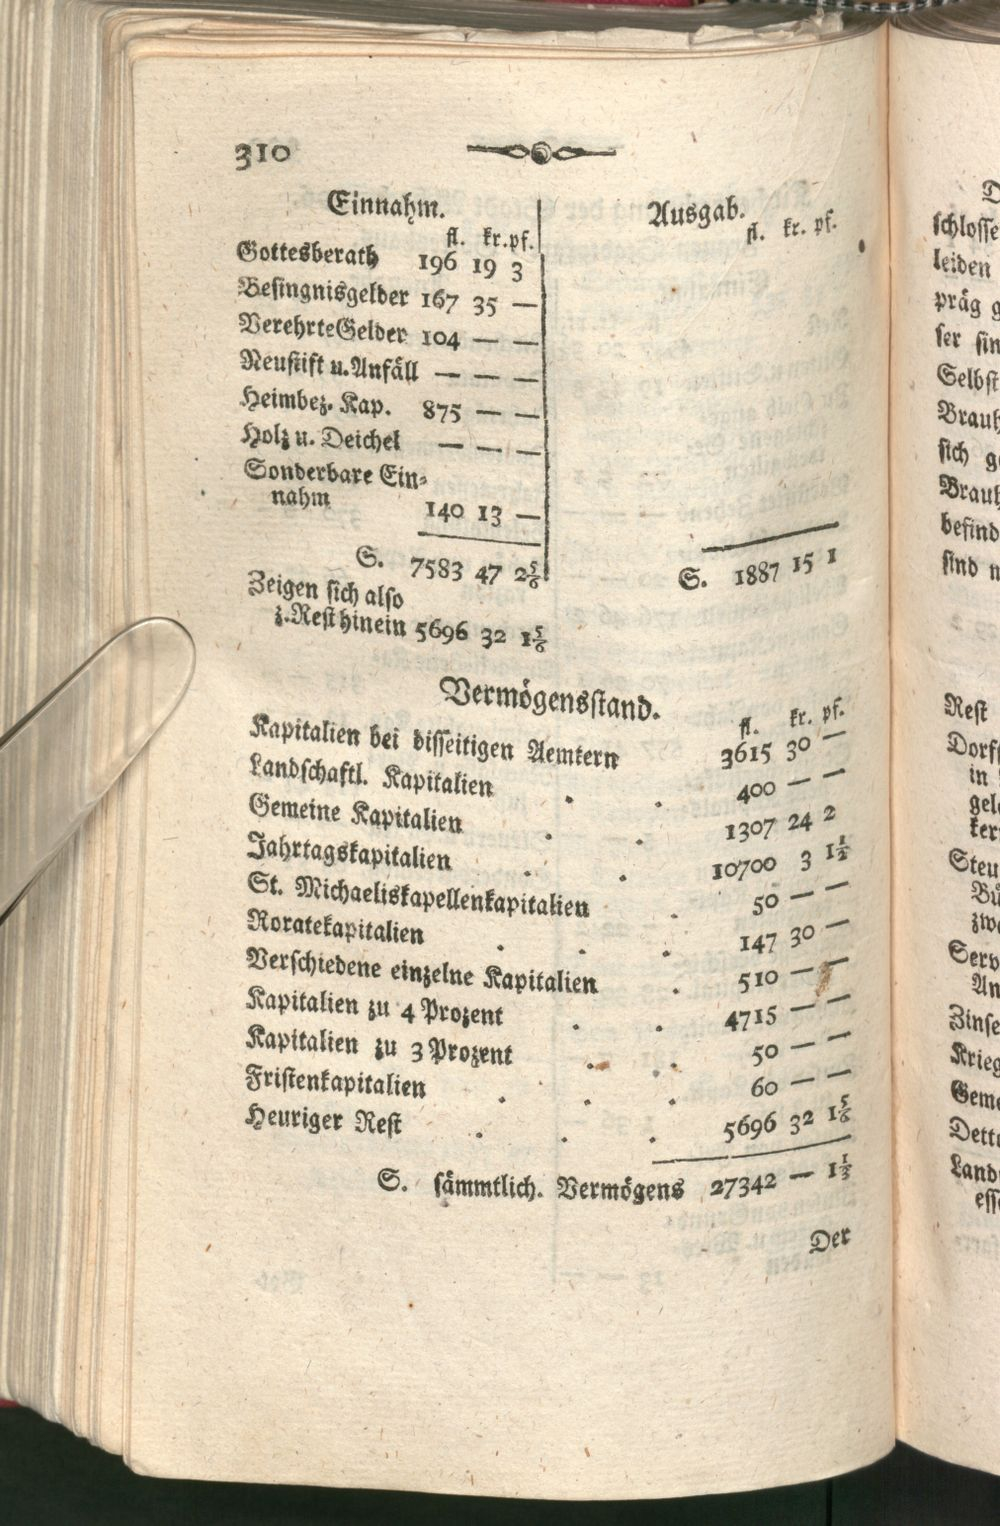 310
Einnahm.
fl. kr. pf.
Gottesberath 196 19 3
Besingnisgelder 167 35 —
Verehrte Gelder 104 — —
Neustift u. Anfäll — — —
Heimbez. Kap. 875 — —
Holz u. Deichel — — —
Sonderbare Ein-
nahm 140 13 —
S. 7583 47 2 5/6
Zeigen sich also
z. Rest hinein 5696 32 1 5/6
Ausgab.
fl. kr. pf.
S. 1887 15 1
Vermögensstand.
fl. kr. pf.
Kapitalien bei disseitigen Aemtern 3615 30 —
Landschaftl. Kapitalien . . 400 — —
Gemeine Kapitalien . . 1307 24 2
Jahrtagskapitalien . . 10700 3 1 1/2
St. Michaeliskapellenkapitalien . 50 — —
Roratekapitalien . . 147 30 —
Verschiedene einzelne Kapitalien . 510 — —
Kapitalien zu 4 Prozent . . 4715 — —
Kapitalien zu 3 Prozent . . 50 — —
Fristenkapitalien . . . 60 — —
Heuriger Rest . . . 5696 32 1 5/6
S. sämmtlich. Vermögens 27342 — 1 1/3
Der
schlosse
leiden
präg g
ser sin
Selbst
Brauh
sich g
Brauh
befind
sind n
Rest
Dorfs
in
gel
ker
Steu
Bü
zwe
Serv
An
Zinse
Krieg
Geme
Dett
Land
ess